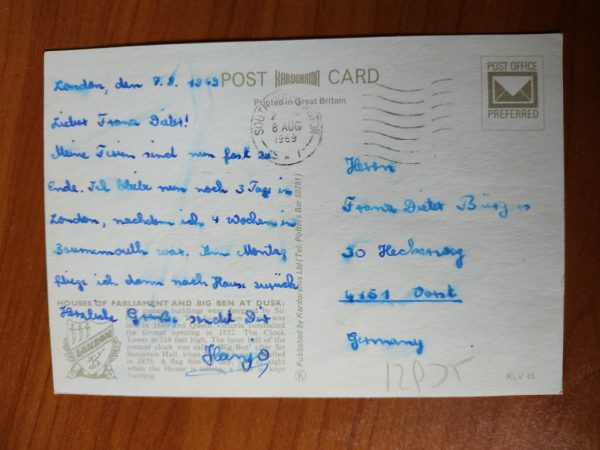 POST KARDORAMA CARD
Printed in Great Britain
POST OFFICE
PREFERRED
8 AUG
1969
London, den 7.8. 1969
Lieber Franz Dieter!
Meine Ferien sind nun fast zu
Ende. Ich bleibe nun noch 3 Tage in
London, nachdem ich 4 Wochen in
Bournemouth war. Am Montag
fliege ich dann nach Hause zurück
Herzliche Grüße sendet Dir
Hanjo
Herrn
Franz Dieter Bürgers
30 Heckerweg
4151 Vorst
Germany
HOUSES OF PARLIAMENT AND BIG BEN AT DUSK:
buildings were designed by Sir
was
in 1840 and Queen Victoria conducted
the formal opening in 1852. The Clock
Tower is 316 feet high. The hour bell of the
present clock was called "Big Ben" after Sir
Benjamin Hall, when
in 1858. A flag flies
when the House is sitting, a
kept
burning.
LONDON
Published by Kardorama Ltd (Tel. Potters Bar 52781)
K
KLV 45